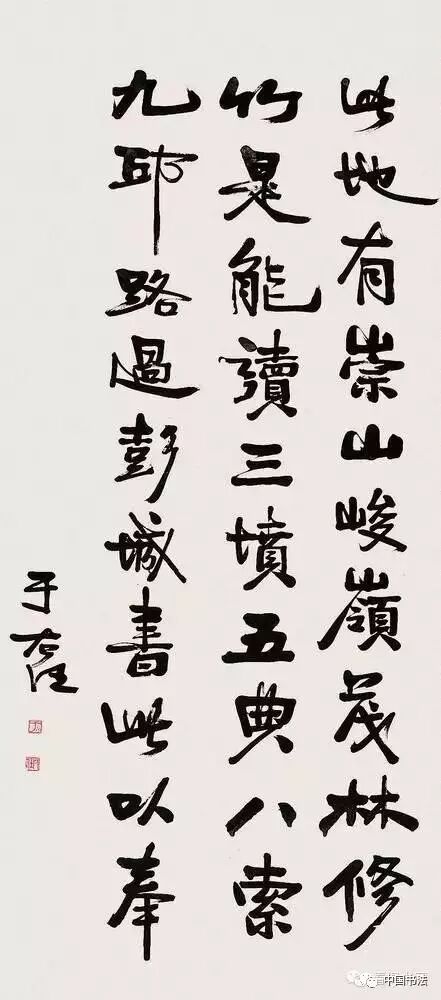 此地有崇山峻嶺茂林修
竹是能讀三墳五典八索
九邱路過彭城書此以奉
于右任
中国书法